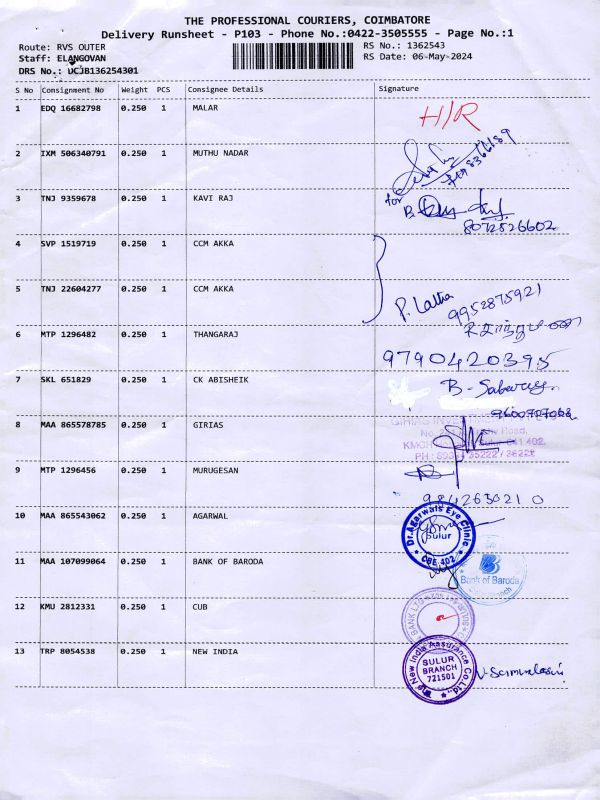 THE PROFESSIONAL COURIERS, COIMBATORE
Delivery Runsheet - P103 - Phone No.:0422-3505555 - Page No.:1
Route: RVS OUTER
RS No.: 1362543
Staff: ELANGOVAN
RS Date: 06-May-2024
DRS No.: UCJB136254301
S No Consignment No Weight PCS Consignee Details Signature
1 EDQ 16682798 0.250 1 MALAR H/R
2 IXM 506340791 0.250 1 MUTHU NADAR
3 TNJ 9359678 0.250 1 KAVI RAJ for B.
8072526602
4 SVP 1519719 0.250 1 CCM AKKA
5 TNJ 22604277 0.250 1 CCM AKKA P. Latha
9952875921
6 MTP 1296482 0.250 1 THANGARAJ
9790420395
7 SKL 651829 0.250 1 CK ABISHEIK B-
8 MAA 865578785 0.250 1 GIRIAS GIRIAS
9 MTP 1296456 0.250 1 MURUGESAN
9842630210
10 MAA 865543062 0.250 1 AGARWAL Dr.Agarwals Eye Clinic
Sulur
CBE 402
11 MAA 107099064 0.250 1 BANK OF BARODA Bank of Baroda
12 KMU 2812331 0.250 1 CUB BANK LTD
13 TRP 8054538 0.250 1 NEW INDIA The New India Assurance Co.Ltd.
SULUR
BRANCH
721501